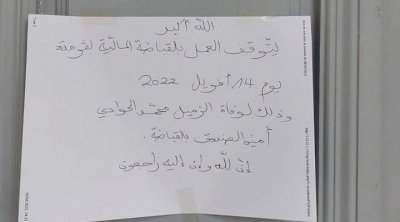 الله أكبر
يتوقف العمل بالقباضة المالية لقرمدة
يوم 14 أفريل 2022
وذلك لوفاة الزميل محمد الجوادي
أمين الصندوق بالقباضة.
إنّ لله وإن إليه راجعون